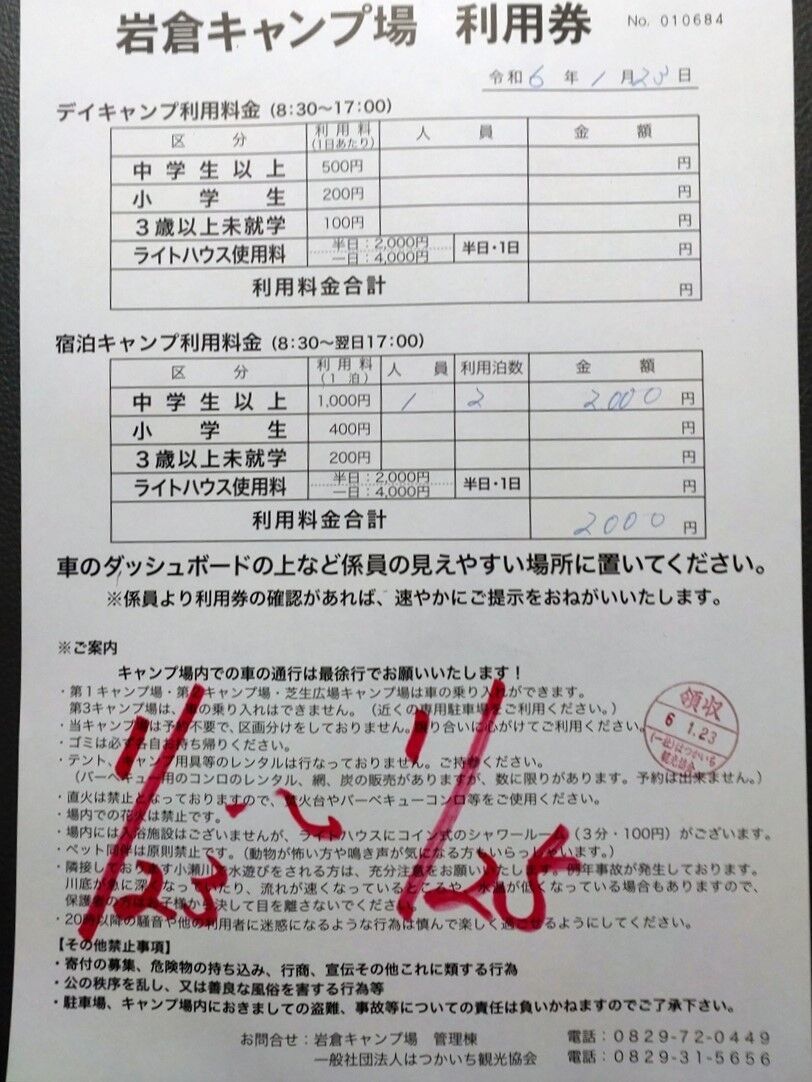 岩倉キャンプ場 利用券
No. 010684
令和6年1月23日
デイキャンプ利用料金 (8:30〜17:00)
区 分 利用料(1日あたり) 人 員 金 額
中学生以上 500円 円
小学生 200円 円
3歳以上未就学 100円 円
ライトハウス使用料 半日:2,000円 一日:4,000円 半日・1日 円
利用料金合計 円
宿泊キャンプ利用料金 (8:30〜翌日17:00)
区 分 利用料(1泊) 人 員 利用泊数 金 額
中学生以上 1,000円 1 2 2000 円
小学生 400円 円
3歳以上未就学 200円 円
ライトハウス使用料 半日:2,000円 一日:4,000円 半日・1日 円
利用料金合計 2000 円
車のダッシュボードの上など係員の見えやすい場所に置いてください。
※係員より利用券の確認があれば、速やかにご提示をおねがいいたします。
※ご案内
キャンプ場内での車の通行は最徐行でお願いいたします!
・第1キャンプ場・第2キャンプ場・芝生広場キャンプ場は車の乗り入れができます。
第3キャンプ場は、車の乗り入れはできません。(近くの専用駐車場をご利用ください。)
・当キャンプ場は予約不要で、区画分けをしておりません。譲り合いに心がけてご利用ください。
・ゴミは必ず各自お持ち帰りください。
・テント、キャンプ用具等のレンタルは行なっておりません。ご持参ください。
(バーベキュー用のコンロのレンタル、網、炭の販売がありますが、数に限りがあります。予約は出来ません。)
・直火は禁止となっておりますので、焚火台やバーベキューコンロ等をご使用ください。
・場内での花火は禁止です。
・場内には入浴施設はございませんが、ライトハウスにコイン式のシャワールーム(3分・100円)がございます。
・ペット同伴は原則禁止です。(動物が怖い方や鳴き声が気になる方もいらっしゃいます。)
・隣接しております小瀬川で水遊びをされる方は、充分注意をお願いいたします。例年事故が発生しております。
川底が急に深くなっていたり、流れが速くなっているところや、水温が低くなっている場合もありますので、
保護者の方はお子様から決して目を離さないでください。
・20時以降の騒音や他の利用者に迷惑になるような行為は慎んで楽しく過ごせるようにしてください。
【その他禁止事項】
・寄付の募集、危険物の持ち込み、行商、宣伝その他これに類する行為
・公の秩序を乱し、又は善良な風俗を害する行為等
・駐車場、キャンプ場内におきましての盗難、事故等についての責任は負いかねますのでご了承下さい。
お問合せ:岩倉キャンプ場 管理棟 電話:0829-72-0449
一般社団法人はつかいち観光協会 電話:0829-31-5656
領収
6 1.23
(一社)はつかいち
観光協会
1/23〜1/25